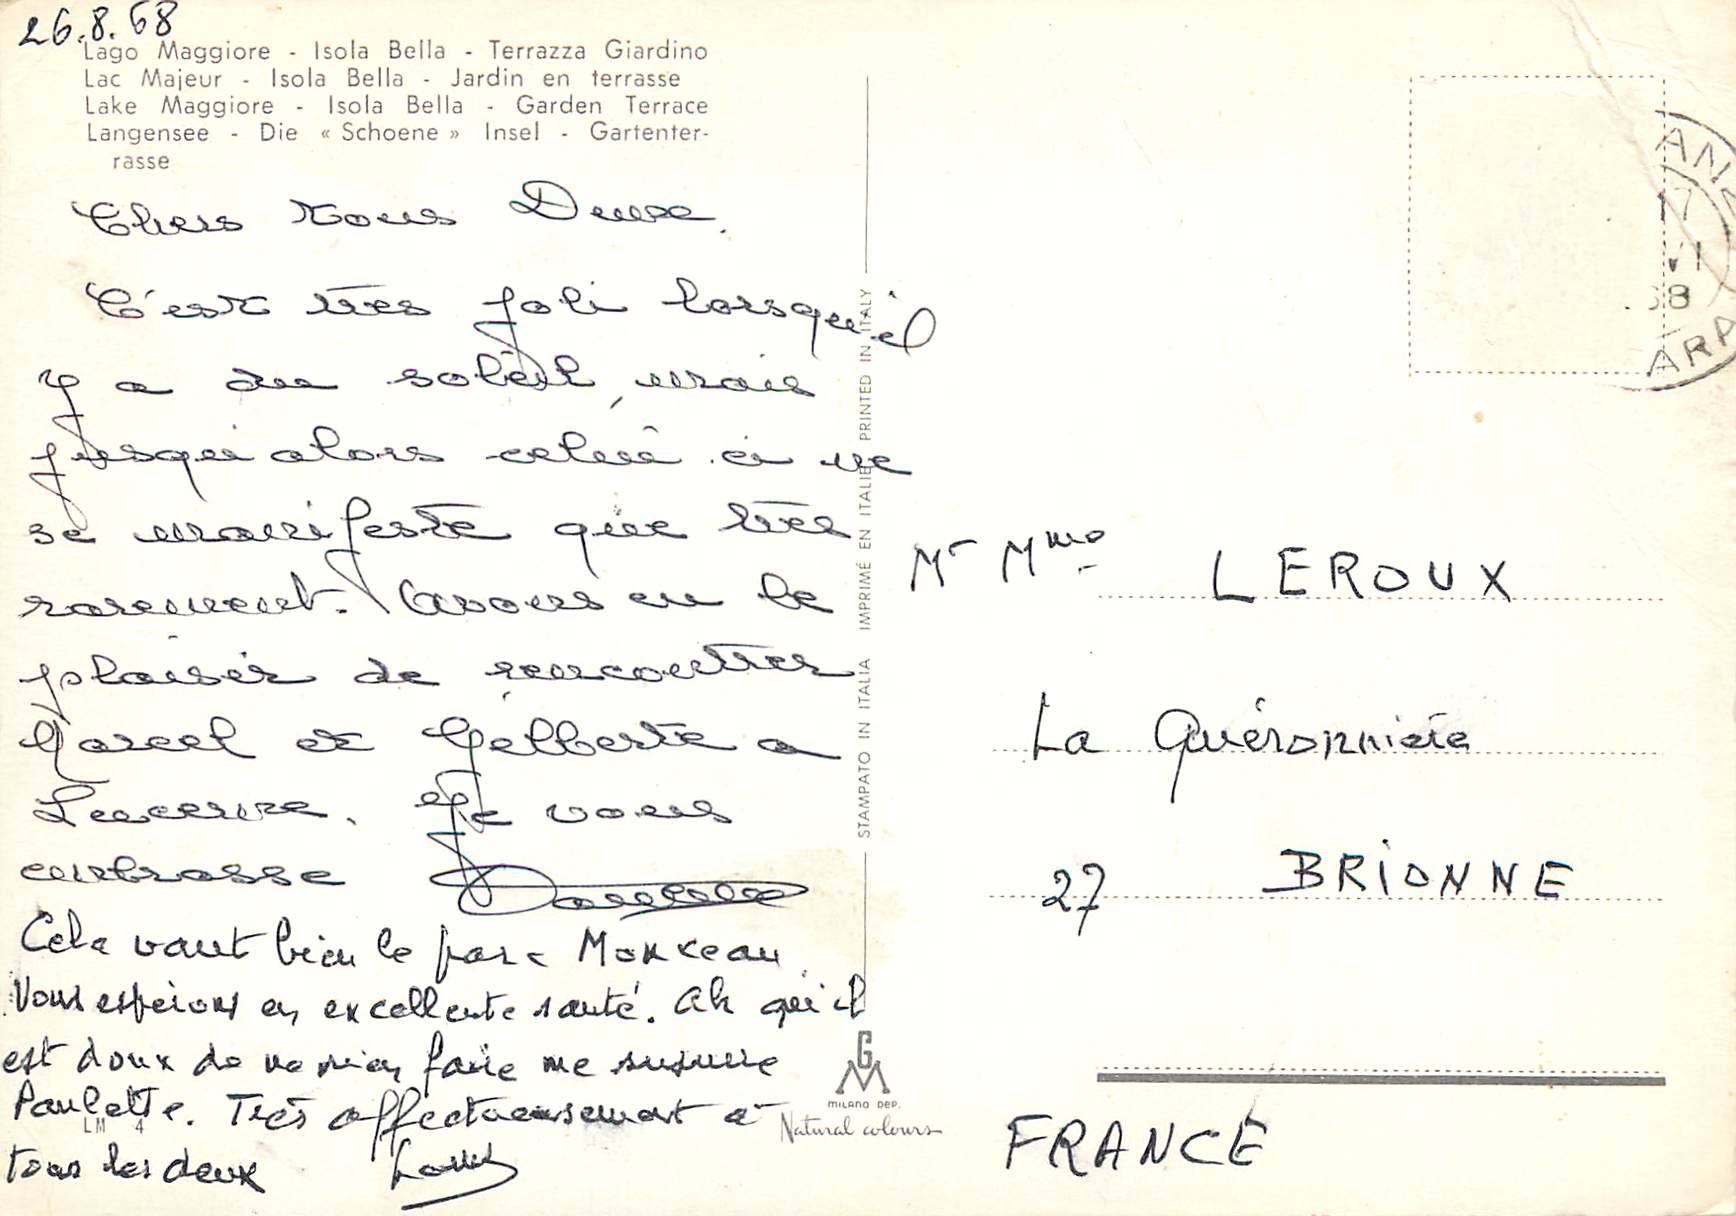 26.8.68
Lago Maggiore - Isola Bella - Terrazza Giardino
Lac Majeur - Isola Bella - Jardin en terrasse
Lake Maggiore - Isola Bella - Garden Terrace
Langensee - Die « Schoene » Insel - Gartenter-
rasse
Chers Tous Deux.
C'est très joli lorsqu'il
y a du soleil, mais
jusqu'alors celui ci ne
se manifeste que très
rarement. Avons eu le
plaisir de rencontrer
Marcel et Gilberte a
Lucerne. Je vous
embrasse Paulette
Cela vaut bien le parc Monceau.
Vous espérons en excellente santé. Ah qu'il
est doux de ne rien faire me susurre
Paulette. Très affectueusement à
tous les deux Louis
LM 4
STAMPATO IN ITALIA IMPRIMÉ EN ITALIE PRINTED IN ITALY
GM
MILANO DEP.
Natural colours
17
VI
68
Mr Mme LEROUX
La Quéronnière
27 BRIONNE
FRANCE